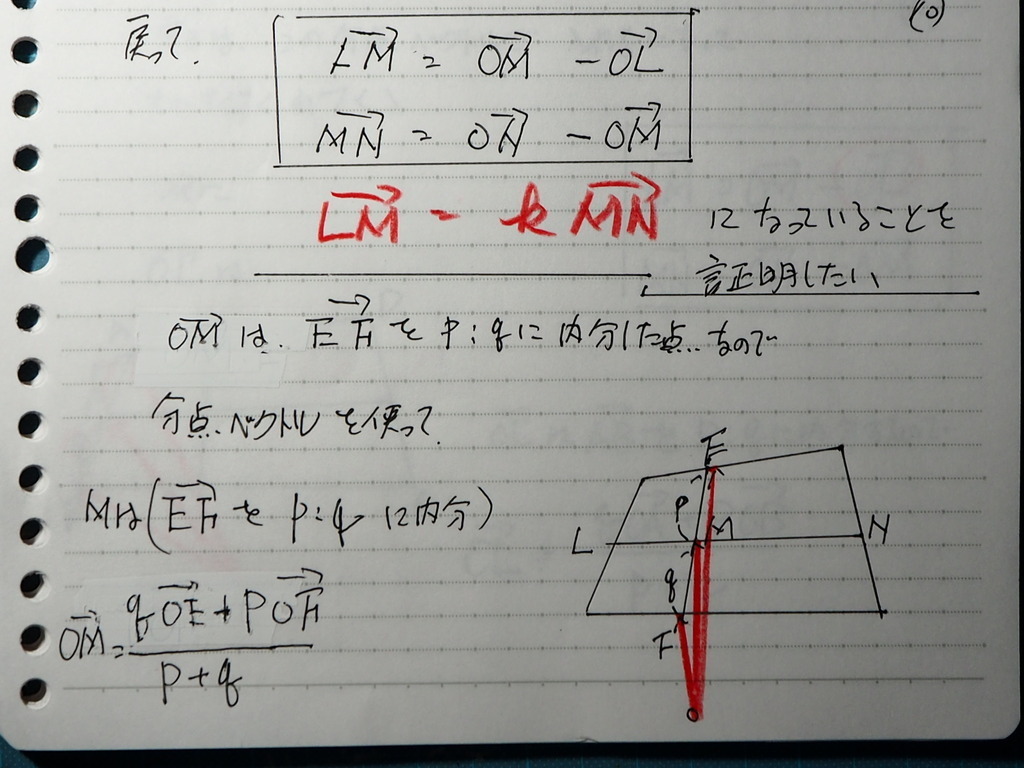 (0)
戻って.
→LM = →OM - →OL
→MN = →ON - →OM
→LM = k →MN になっていることを
証明したい
→OM は、→EF を p:q に 内分した点 なので
分点ベクトルを使って
Mは(→EF を p:q に内分)
→OM = (q→OE + p→OF) / (p+q)
E
p
L M N
q
F
O